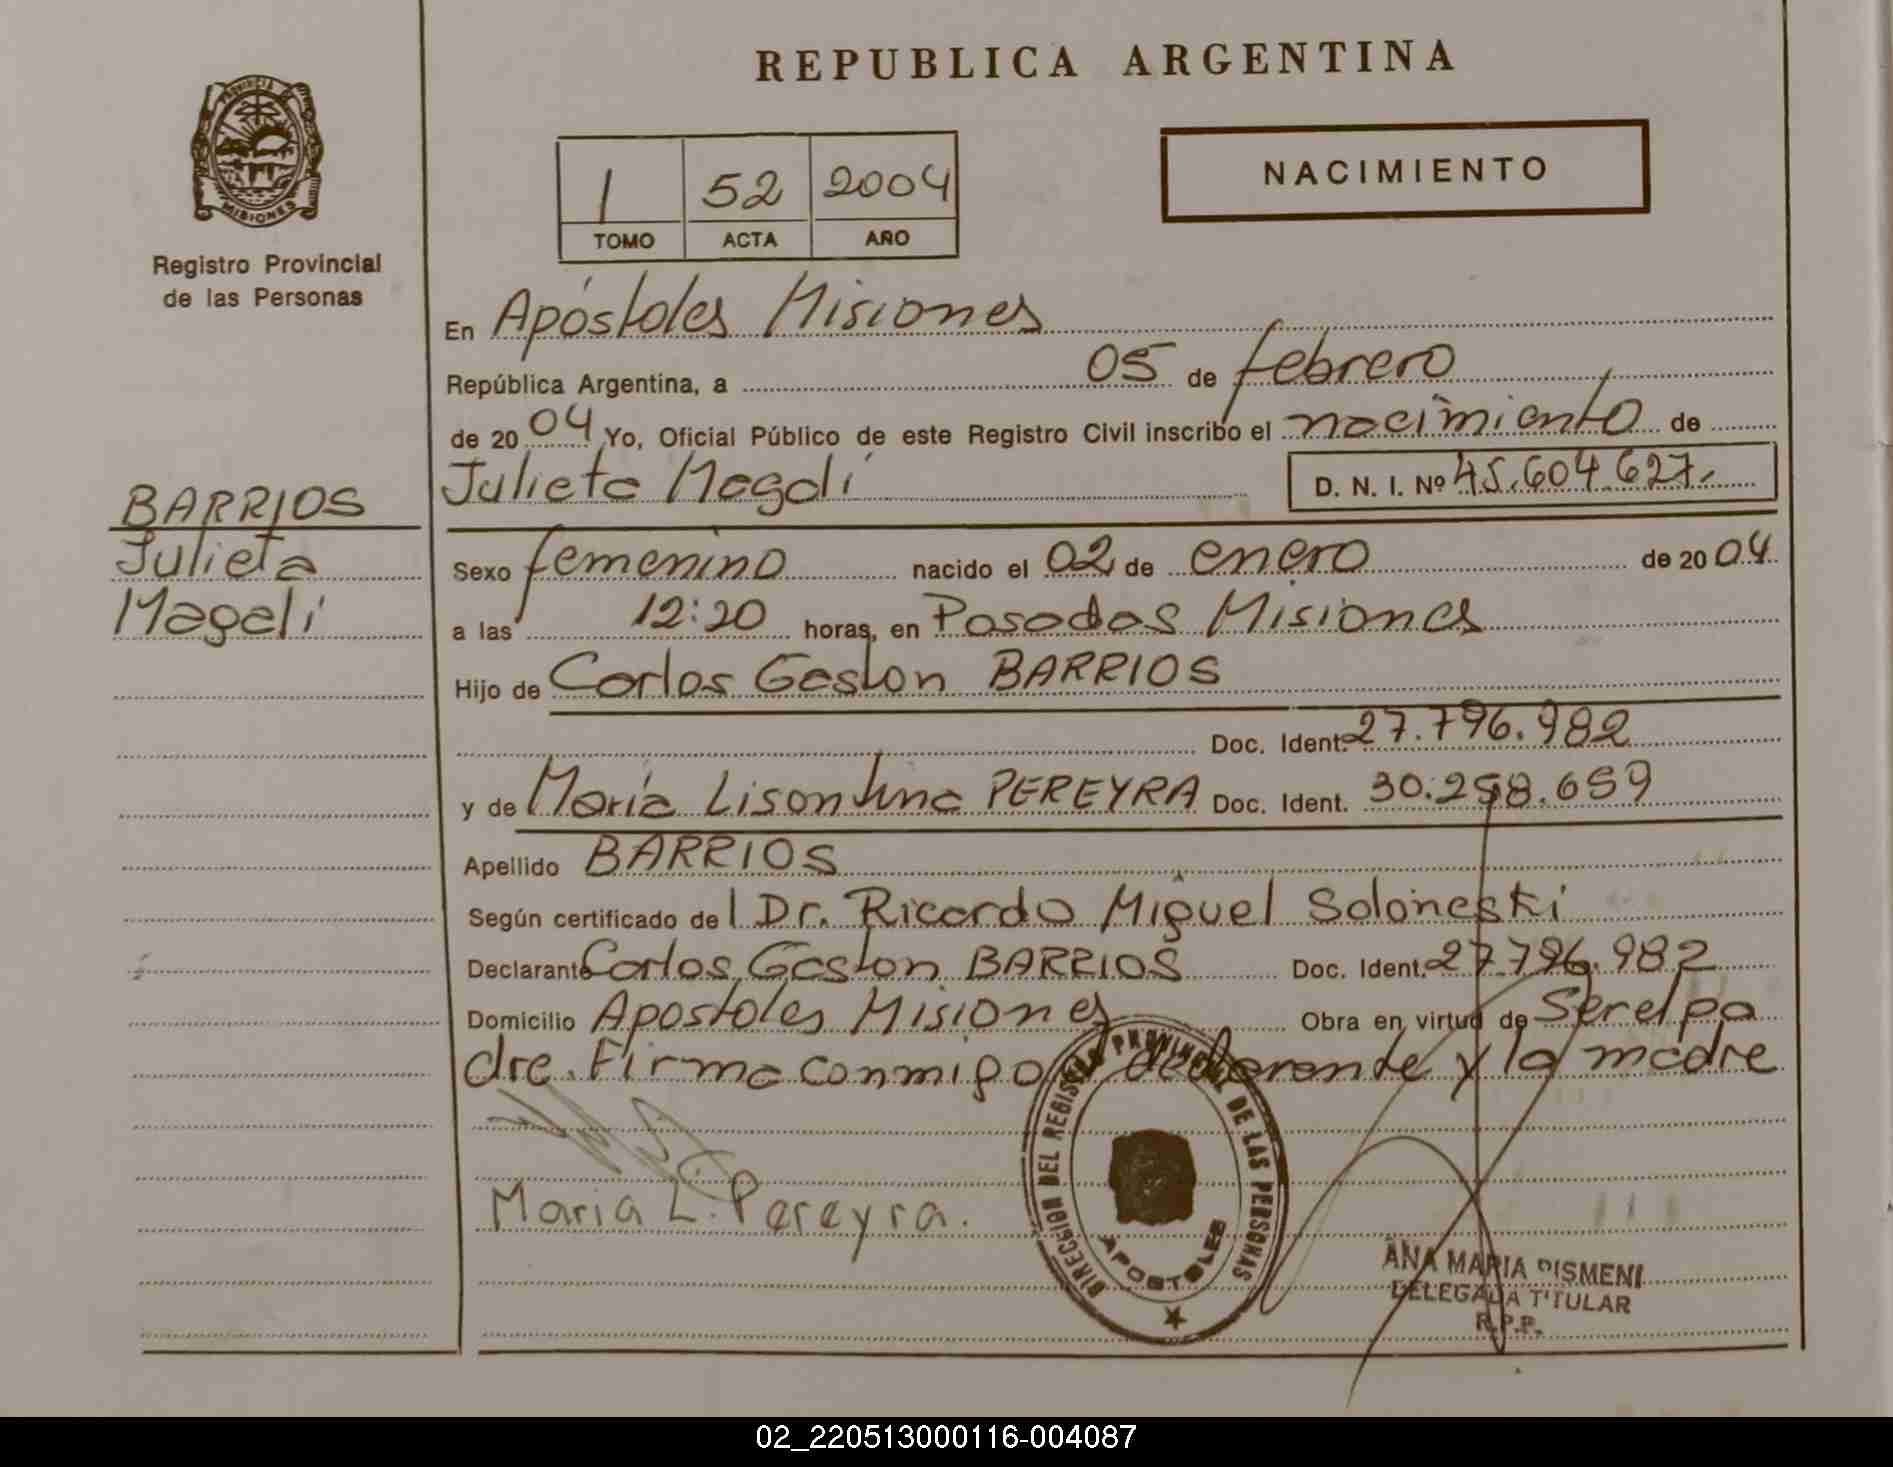 REPUBLICA ARGENTINA
PROVINCIA DE
MISIONES
Registro Provincial
de las Personas
1 52 2004
TOMO ACTA AÑO
NACIMIENTO
En Apóstoles Misiones
República Argentina, a 05 de febrero
de 20 04 Yo, Oficial Público de este Registro Civil inscribo el nacimiento de
Julieta Magalí D. N. I. Nº 45.604.627.
BARRIOS
Julieta
Magalí
Sexo femenino nacido el 02 de enero de 20 04
a las 12:20 horas, en Posadas Misiones
Hijo de Carlos Gaston BARRIOS
Doc. Ident. 27.796.982
y de María Lisontina PEREYRA Doc. Ident. 30.258.659
Apellido BARRIOS
Según certificado de l Dr. Ricardo Miguel Soloneski
Declarante Carlos Gaston BARRIOS Doc. Ident. 27.796.982
Domicilio Apostoles Misiones Obra en virtud de Ser el pa
dre. Firma conmigo el declarante y la madre
Maria L. Pereyra.
DIRECCION DEL REGISTRO PROVINCIAL DE LAS PERSONAS
APOSTOLES
ANA MARIA PISMENI
DELEGADA TITULAR
R.P.P.
02_220513000116-004087